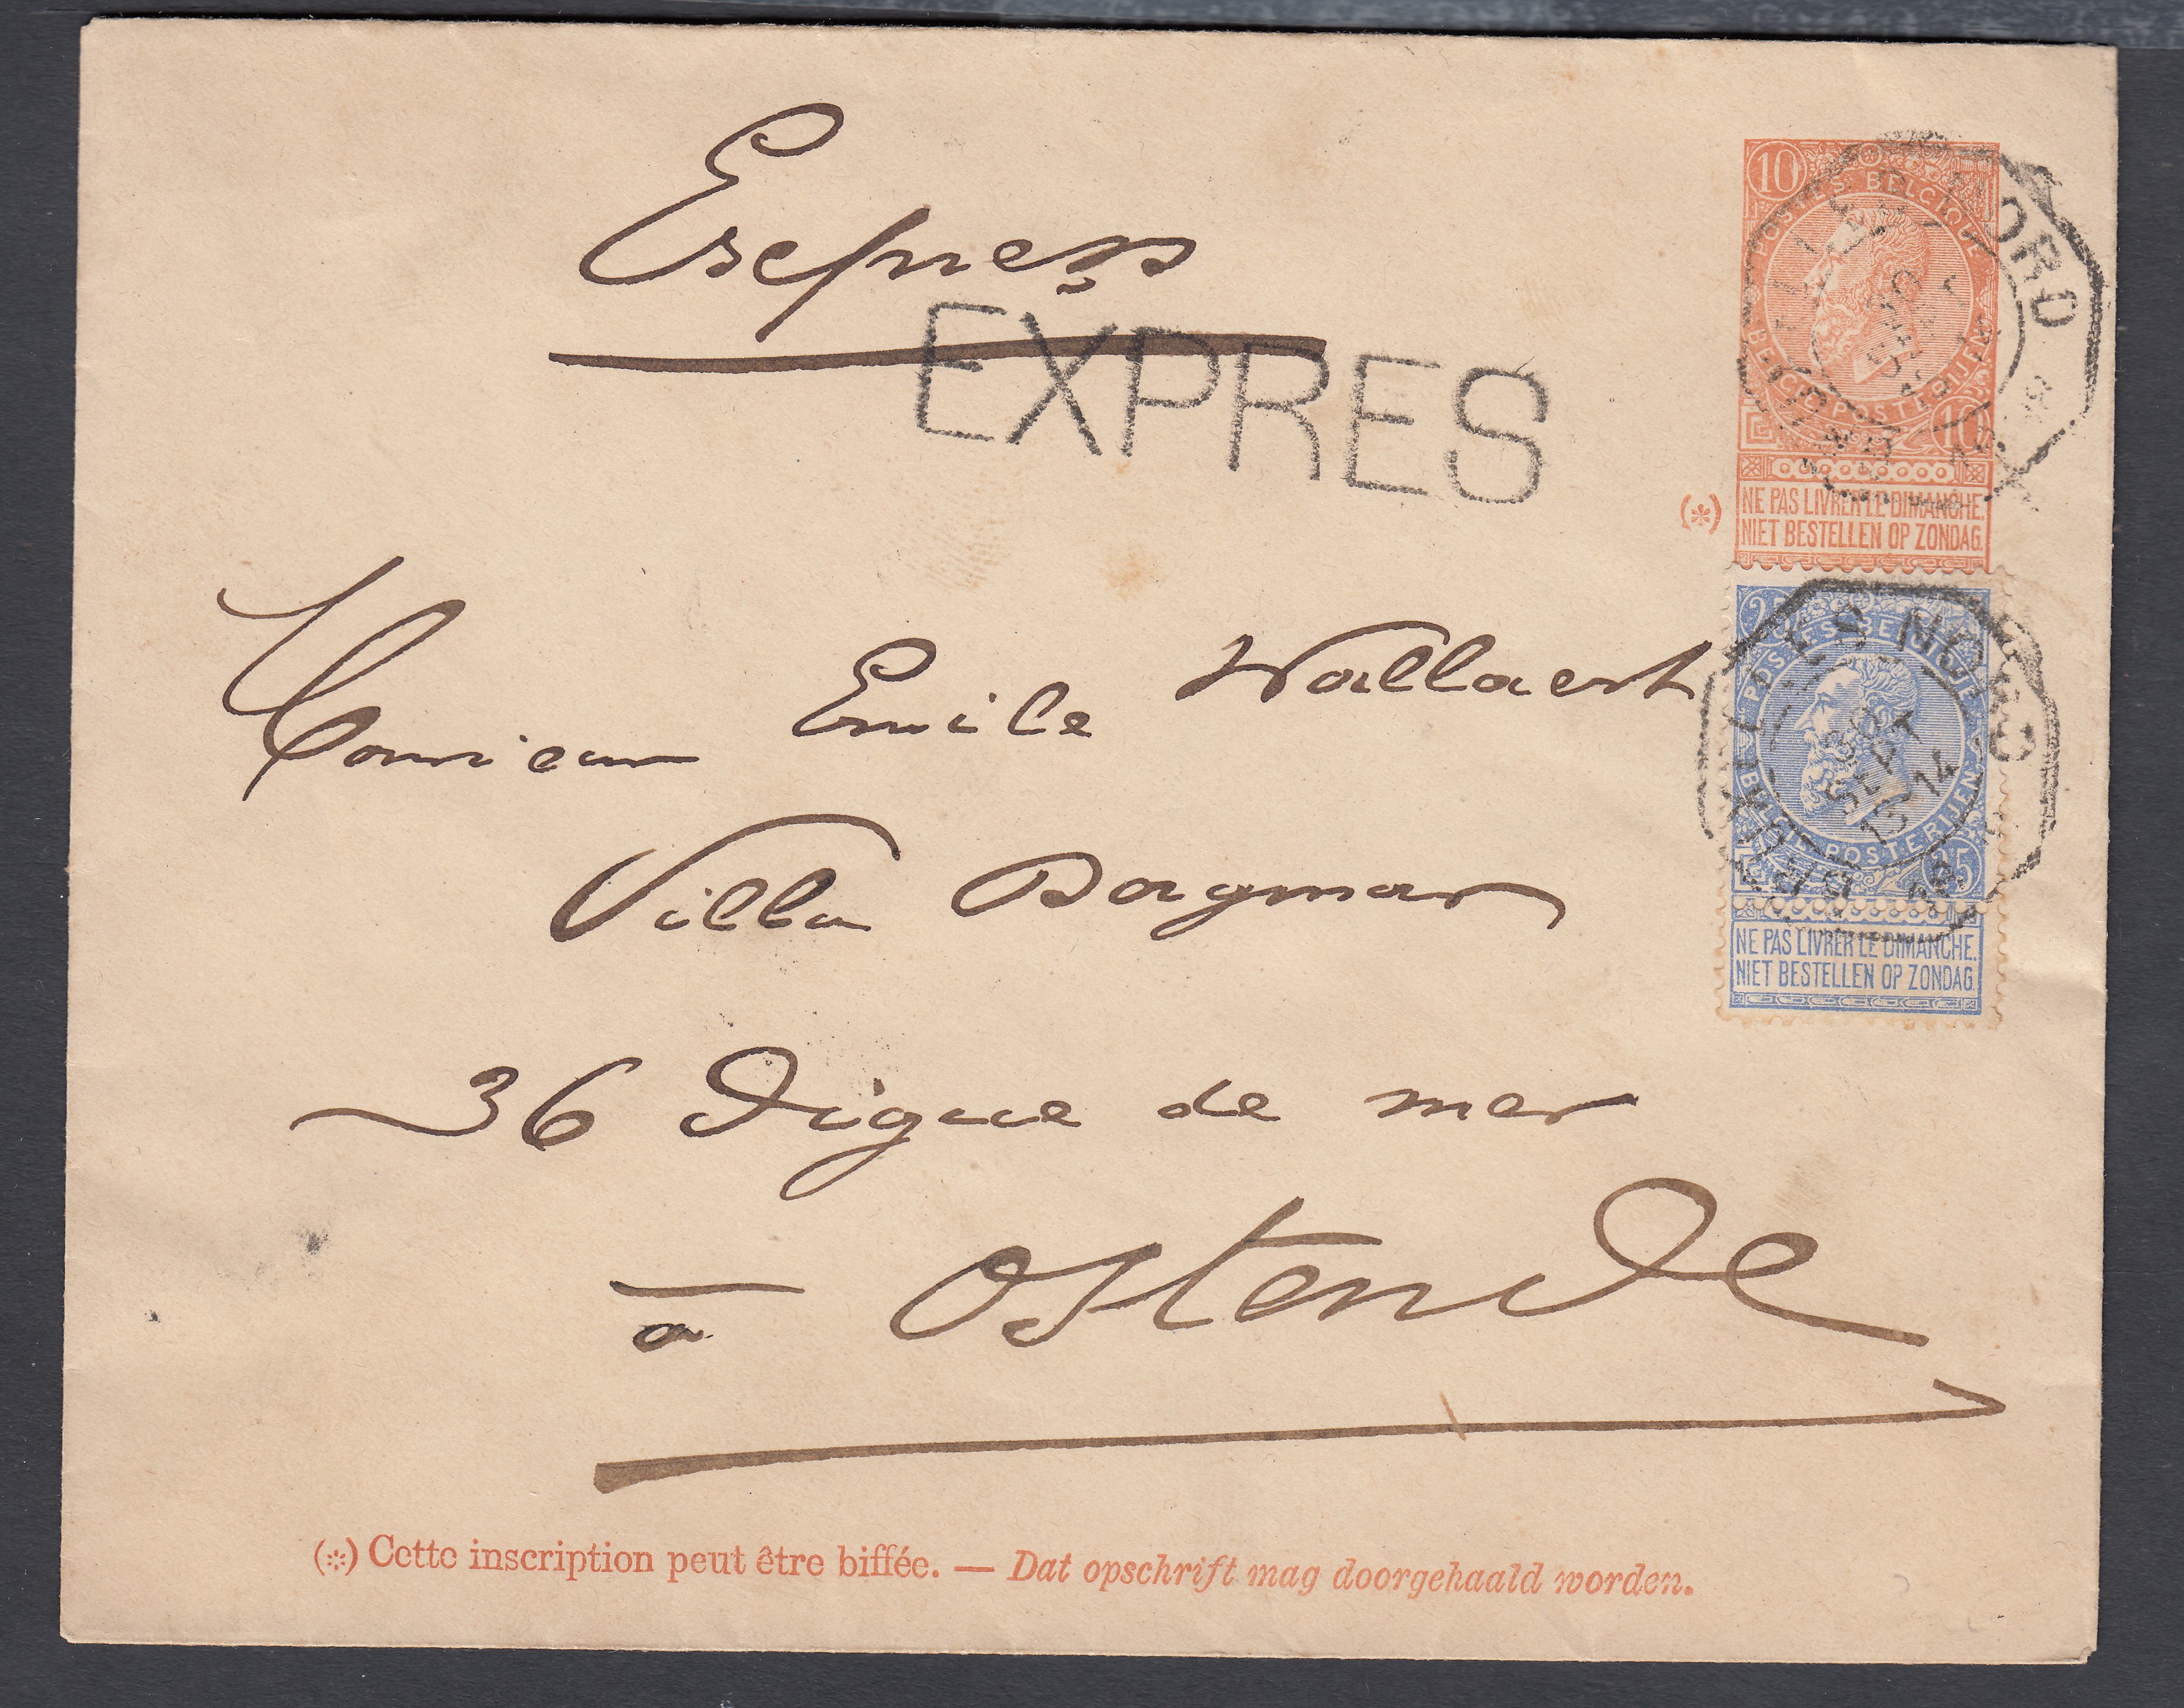 Express
EXPRES
10
POSTES BELGIQUE
BELGIE POSTERIJEN
10
NORD
(*)
NE PAS LIVRER LE DIMANCHE.
NIET BESTELLEN OP ZONDAG.
Monsieur Emile Wallaert
25
POSTES BELGIQUE
BELGIE POSTERIJEN
25
BRUXELLES NORD
SEPT
13-14
NE PAS LIVRER LE DIMANCHE.
NIET BESTELLEN OP ZONDAG.
Villa Dagmar
36 Digue de mer
à Ostende
(*) Cette inscription peut être biffée. — Dat opschrift mag doorgehaald worden.